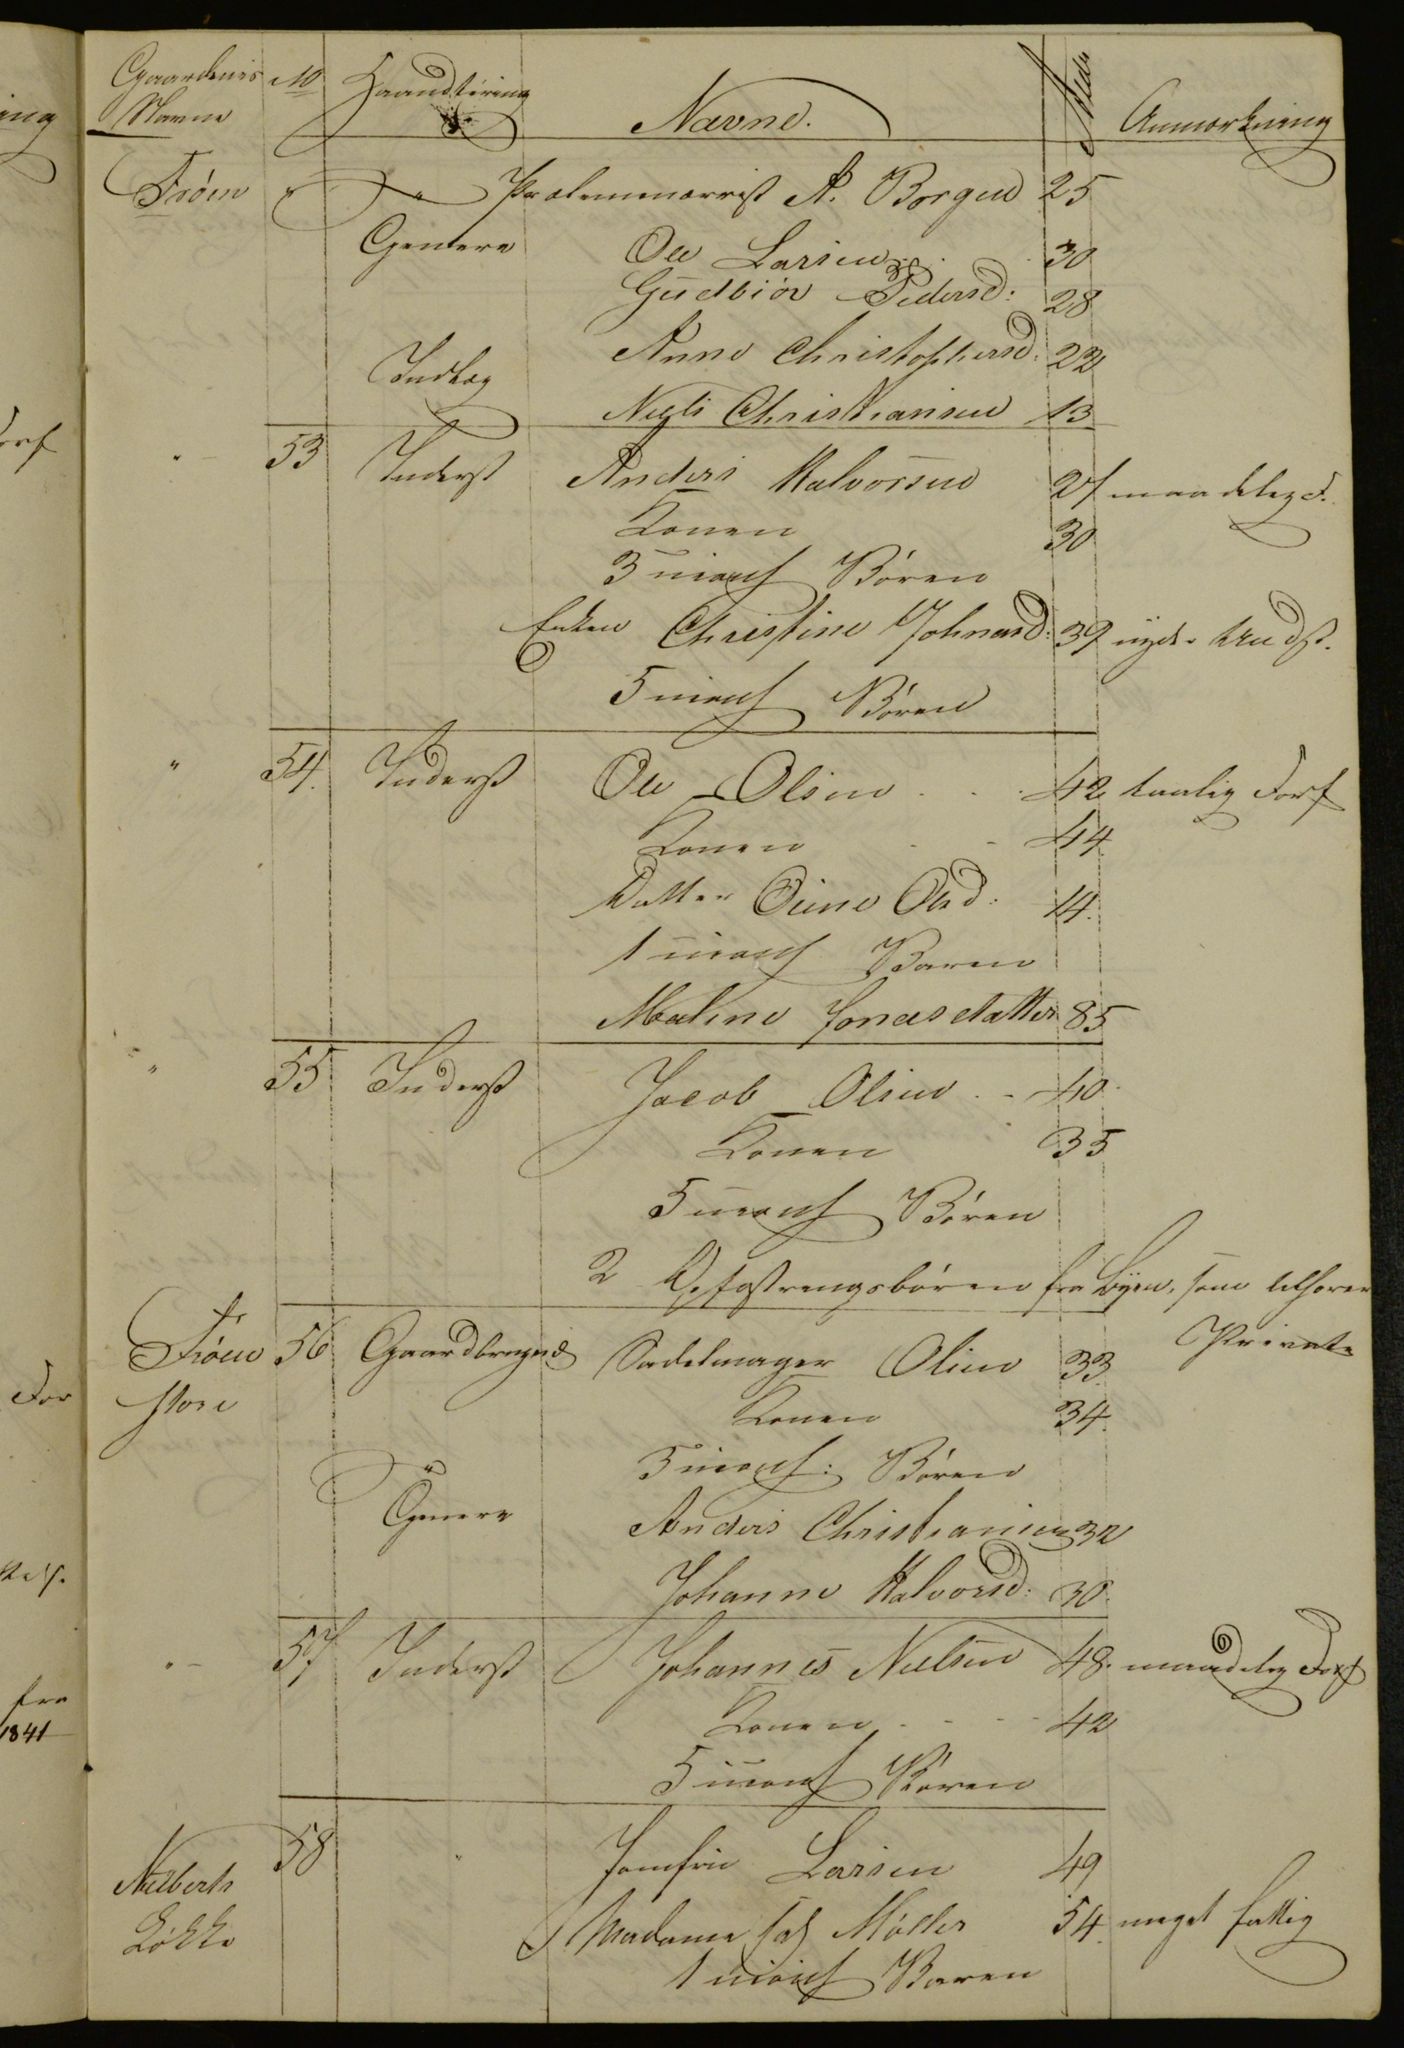 Gaardenes No Haandtering Navne. Alder Anmærkning
Navne
Frøen " " Proletenærrist A. Borgen 25
Tjenere Ole Larsen 30
Gudbiør Pedersd: 28
Anne Christophersd: 22
Indlog
Niels Christiansen 13
" 53 Inderst Anders Halvorsen 27 maadelig F.
Konen 30
3 uconf Børen
Enken Christine Johnasd: 39 nyder Undst.
5 uconf Børen
" 54. Inderst Ole Olsen 42 taalig Forf
Konen 44
Datter Oline Olsd: 14.
1 uconf Baren
Malene Jonasdatter 85
" 55 Inderst Jacob Olsen 40
Konen 35
5 uconf Børen
2 Opfostringsbøren fra Byen, som tilhører
Private
Frøen 56 Gaardbruger Sadelmager Olsen 33
store Konen 34.
3 uconf: Børen
Tjenere Anders Christiansen 32
Johanne Halvorsd: 30.
" 57 Inderst Johannes Nielsen 48. maadelig Forf
Konen 42
5 uconf Børen
58 " Jomfru Larsen 49
Løkke Madame Møller 54. meget fattig
1 uconf Baren
fra
1841